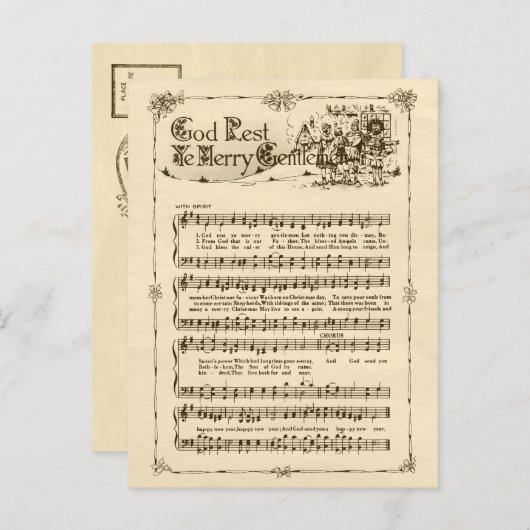 PLACE
RE
God Rest
Ye Merry Gentlemen
WITH SPIRIT
1. God rest ye mer-ry gen-tle-men Let noth-ing you dis-may, Re-
2. From God that is our Fa-ther, The bless-ed An-gels came, Un-
3. God bless the rul-er of this House, And send Him long to reign, And
mem-ber Christ our Sav-iour Was born on Christ-mas day, To save your souls from
to some cer-tain Shep-herds, With tid-ings of the same; That there was born in
many a mer-ry Christ-mas May live to see a-gain. A-mong your friends and
CHORUS
Sa-tan's power Which had long time gone a-stray, And God send you
Beth-le-hem, The Son of God by name.
kin-dred, That live both far and near,
hap-py new year, hap-py new year; And God send you a hap-py new year,